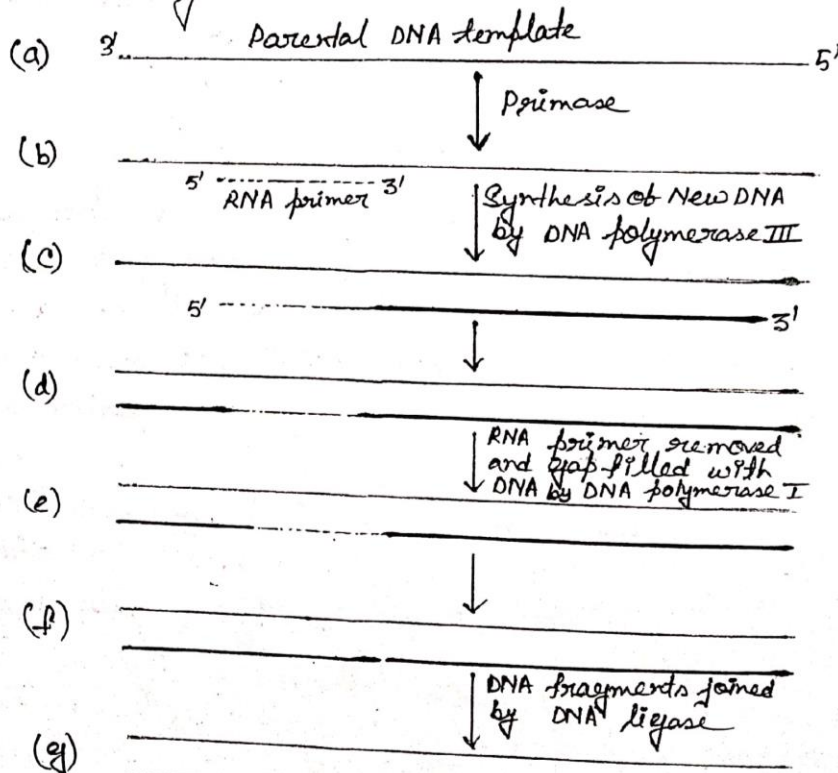 (a) 3' Parental DNA template 5'
Primase
(b)
5' 3'
RNA primer
Synthesis of New DNA
by DNA polymerase III
(c)
5' 3'
(d)
RNA primer removed
and gap filled with
DNA by DNA polymerase I
(e)
(f)
DNA fragments joined
by DNA ligase
(g)